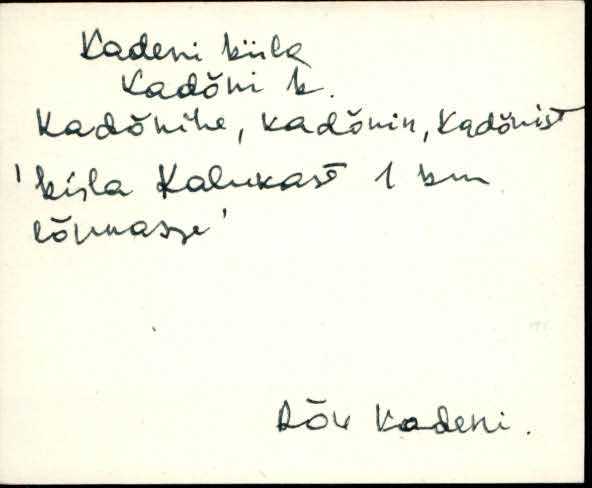 Kadeni küla
Kadõni k.
Kadõnihe, kadõnin, Kadõnist
'küla Kalukast 1 km
lõunasse'
Rõu Kadeni.